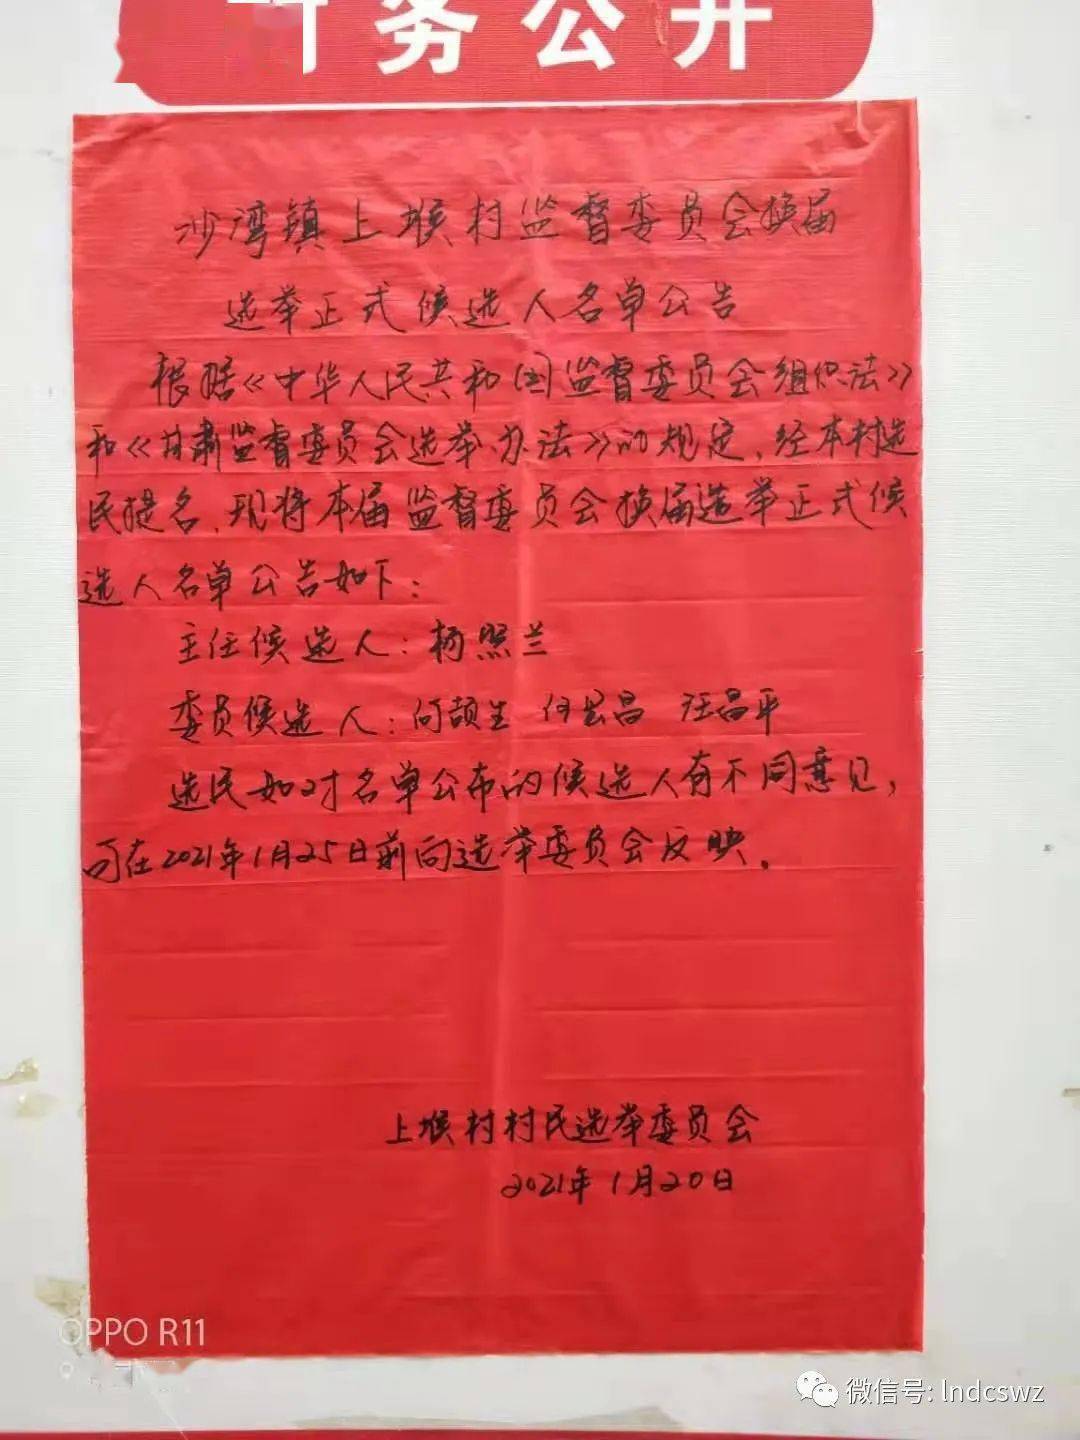 务公开
沙湾镇上堠村监督委员会换届
选举正式候选人名单公告
根据《中华人民共和国监督委员会组织法》
和《甘肃监督委员会选举办法》的规定，经本村选
民提名，现将本届监督委员会换届选举正式候
选人名单公告如下：
主任候选人：杨照兰
委员候选人：何颉生 何 昌 汪昌平
选民如对名单公布的候选人有不同意见，
可在2021年1月25日前向选举委员会反映。
上堠村村民选举委员会
2021年1月20日
OPPO R11
微信号: lndcswz